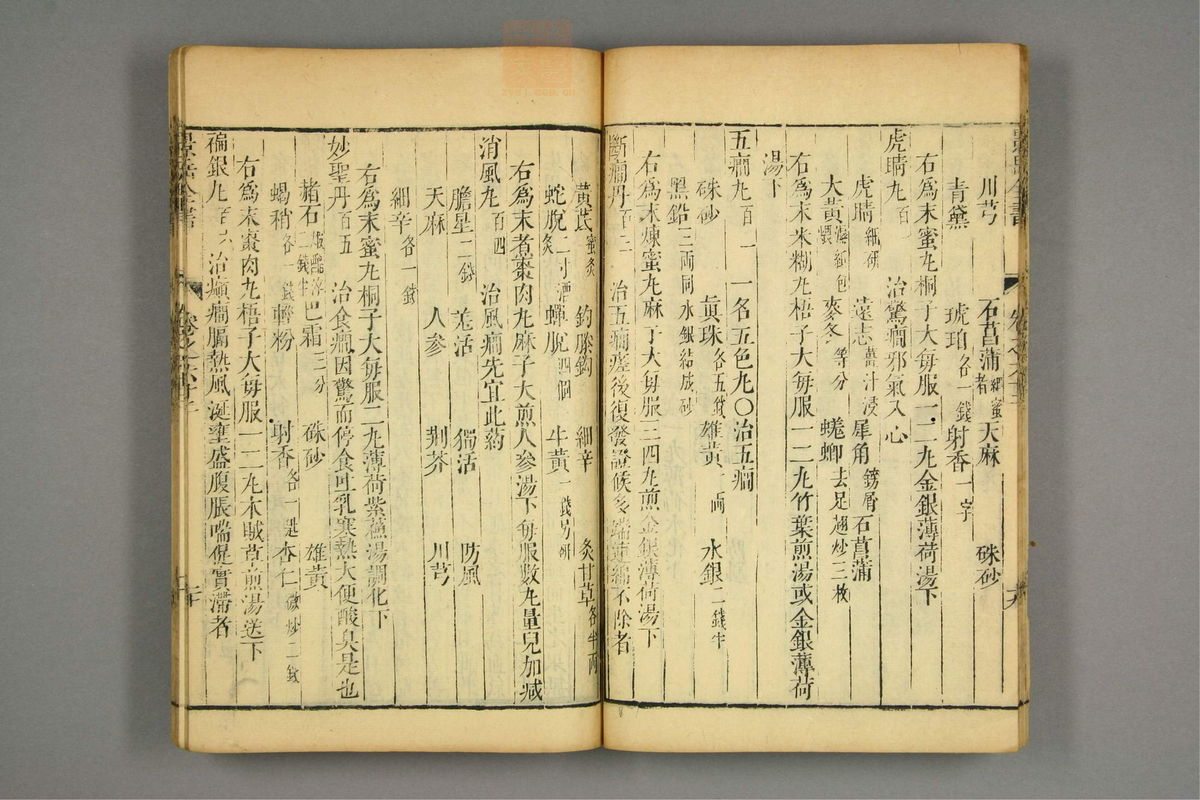 川芎 石菖蒲細蜜者 天麻 硃砂
青黛 琥珀各一錢 射香一字
右爲末蜜丸桐子大每服一二丸金銀薄荷湯下
虎睛丸百 治驚癇邪氣入心
虎睛細研 遠志薑汁浸 犀角鎊屑 石菖蒲
大黃 麥冬等分 蜣螂去足翅炒三枚
右爲末米糊丸梧子大每服一二丸竹葉煎湯或金銀薄荷
湯下
五癇丸百一 一名五色丸○治五癇
硃砂 眞珠各五錢 雄黃一兩 水銀二錢半
黑鉛三兩同水銀結成砂
右爲末煉蜜丸麻子大每服三四丸煎金銀薄荷湯下
斷癇丹百三 治五癇瘥後復發證候多端連綿不除者
黃芪蜜炙 鈎藤鈎 細辛 炙甘草各半兩
蛇脫二寸酒炙 蟬脫四個 牛黃一錢另研
右爲末煮棗肉丸麻子大煎人參湯下每服數丸量兒加减
消風丸百四 治風癇先宜此藥
膽星二錢 羌活 獨活 防風
天麻 人參 荆芥 川芎
細辛各一錢
右爲末蜜丸桐子大每服二丸薄荷紫蘇湯調化下
妙聖丹百五 治食癇因驚而停食吐乳寒熱大便酸臭是也
赭石煅醋淬二錢半 巴霜三分 硃砂 雄黃
蝎稍各一錢 輕粉 射香各一匙 杏仁微炒二錢
右爲末棗肉丸梧子大每服一二丸木賊草煎湯送下
褊銀丸百六 治癲癇膈熱風涎壅盛腹脹喘促實滯者